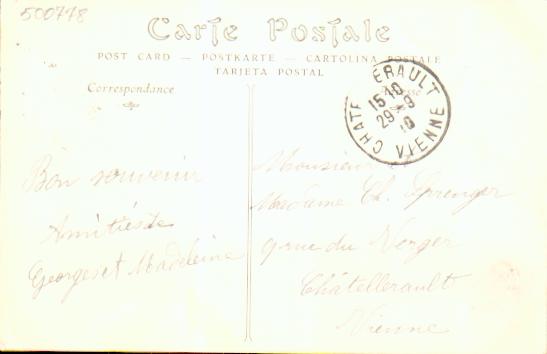 500778
Carte Postale
POST CARD — POSTKARTE — CARTOLINA POSTALE
TARJETA POSTAL
Correspondance
Adresse
CHATELLERAULT
15 10
29 - 9
10
VIENNE
Bon souvenir
Amitiés de
Georges et Madeleine
Monsieur et
Madame Ch. Sprenger
9 rue du Verger
Châtellerault
Vienne